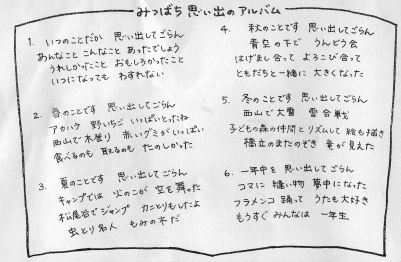 みつばち 思い出のアルバム
1. いつのことだか 思い出してごらん
あんなこと こんなこと あったでしょう
うれしかったこと おもしろかったこと
いつになっても わすれない
2. 春のことです 思い出してごらん
アカハウ 野いちご いっぱいとったね
西山で木登り 赤いグミがいっぱい
食べるのも 取るのも たのしかった
3. 夏のことです 思い出してごらん
キャンプでは 火のこが 空を舞った
松尾谷でジャンプ カニとりもしたよ
虫とり名人 もみの木だ
4. 秋のことです 思い出してごらん
青空の下で うんどう会
はげまし合って よろこび合って
ともだちと一緒に 大きくなった
5. 冬のことです 思い出してごらん
西山で大雪 雪合戦
子どもの森の仲間とリズムして 絵も描き
橋立のまたのぞき 竜が見えた
6. 一年中を 思い出してごらん
コマに 縫い物 夢中になった
フラメンコ 踊って うたも大好き
もうすぐ みんなは 一年生